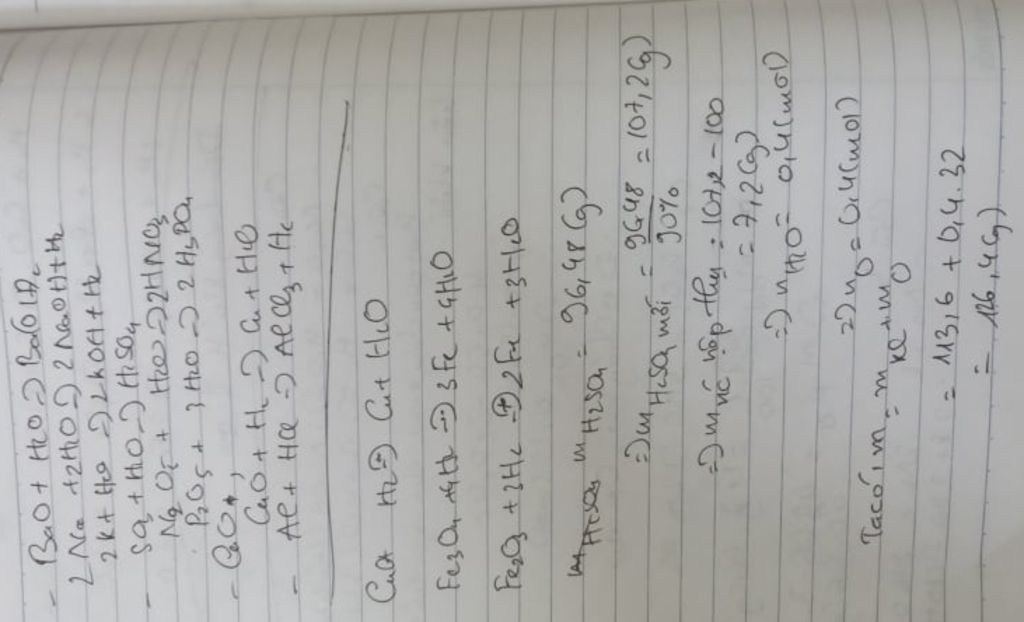 - BaO + H2O → Ba(OH)2
2Na + 2H2O → 2NaOH + H2
2K + H2O → 2KOH + H2
- SO3 + H2O → H2SO4
N2O5 + H2O → 2HNO3
P2O5 + 3H2O → 2H3PO4
- CaO,
CuO + H2 → Cu + H2O
- Al + HCl → AlCl3 + H2
CuO H2 → Cu + H2O
Fe3O4 + 4H2 → 3Fe + 4H2O
Fe2O3 + 3H2 → 2Fe + 3H2O
m H2SO4 = 96,48 (g)
⇒ m H2SO4 mới = 96,48 / 90% = 107,2 (g)
⇒ m nc hấp thu = 107,2 - 100
= 7,2 (g)
⇒ n H2O = 0,4 (mol)
⇒ n O = 0,4 (mol)
Ta có: m = m kl + m O
= 113,6 + 0,4.32
= 16,4 (g)